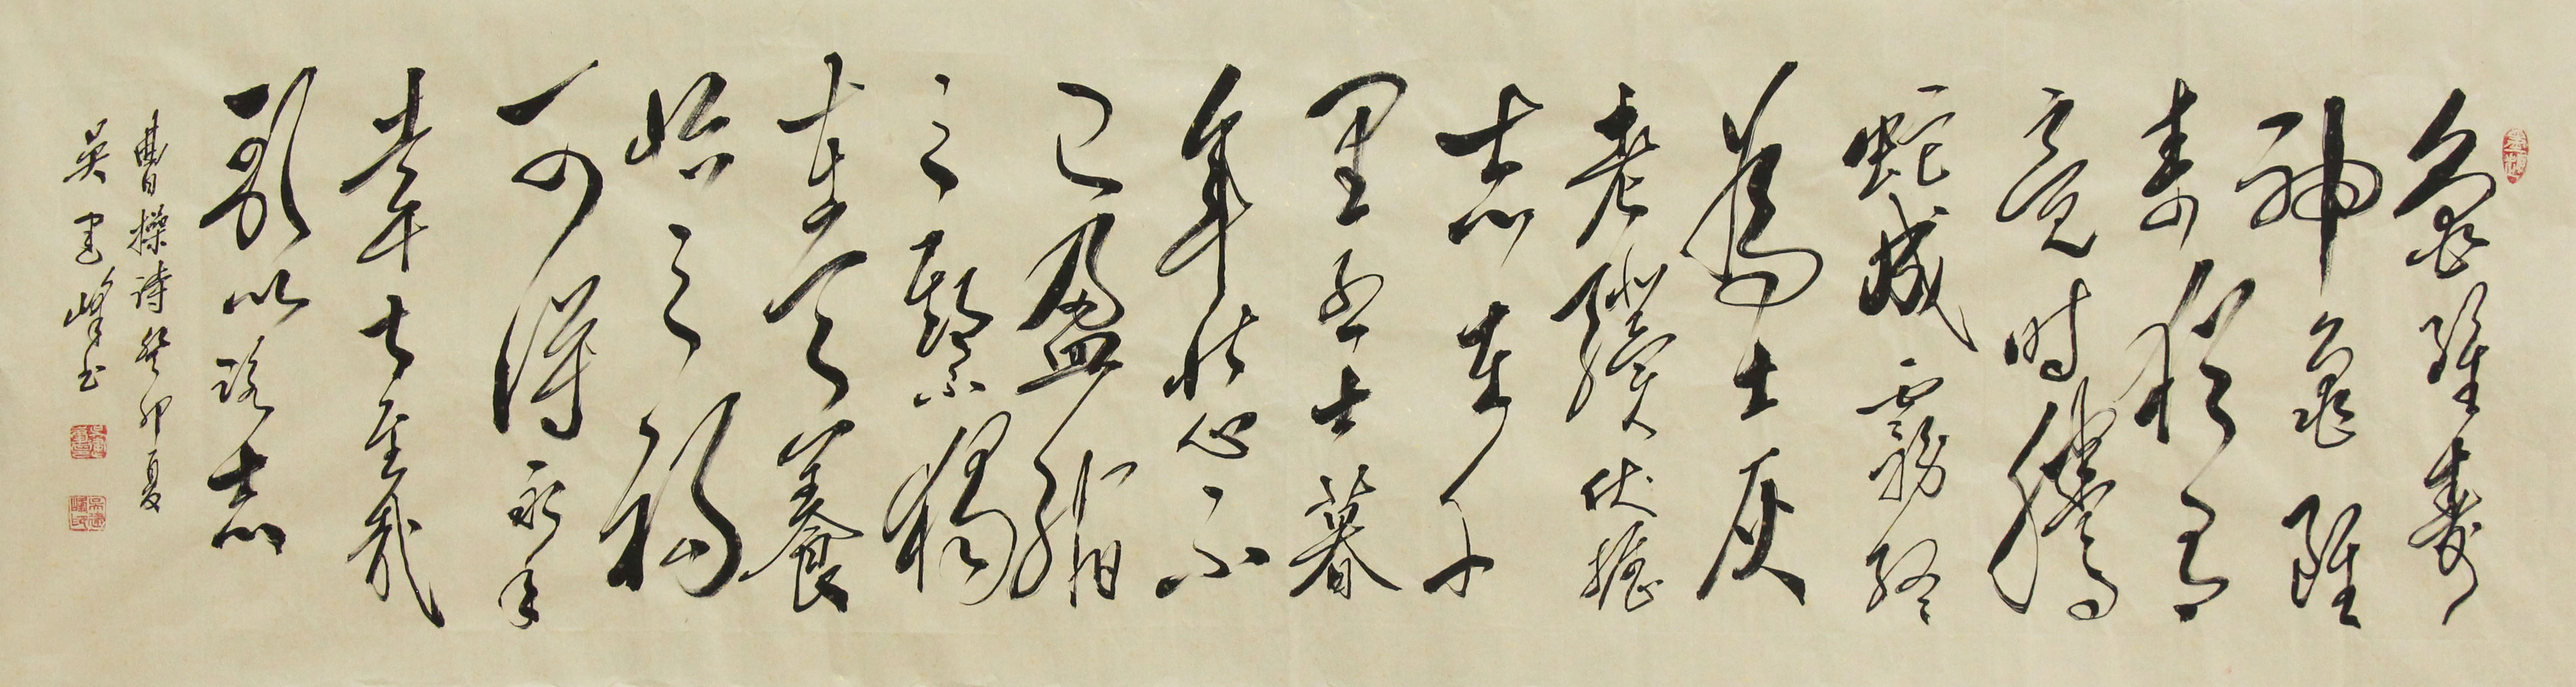 龜雖壽
神龜雖
壽猶有
竟時騰
蛇成霧終
為土灰
老驥伏櫪
志在千
里烈士暮
年壯心不
已盈縮
之期不獨
在天養
怡之福
可得永年
幸甚至哉
歌以詠志
曹操詩癸卯夏
吳峰书